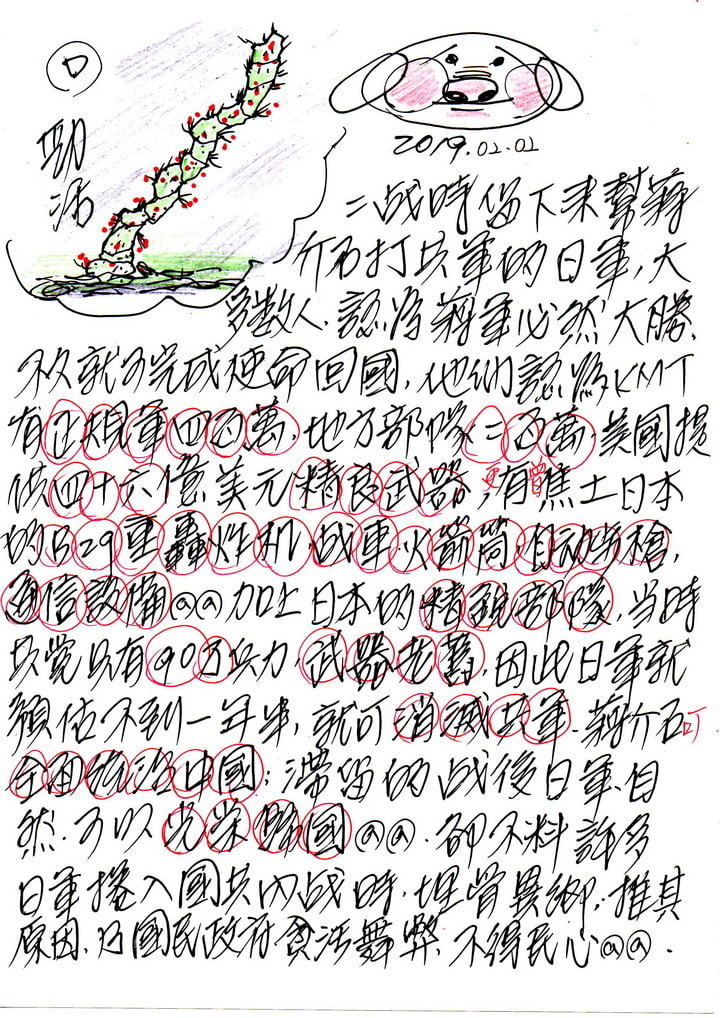 D
2019.02.02
二战時留下來幫蔣
介石打共軍的日軍,大
多数人.認为蔣軍必然大勝.
不久就可完成使命回國,他们認为KMT
有正規軍四百萬.地方部隊二百萬.美國提
供四十六億美元精良武器,更有曾焦土日本
的B29重轟炸机.战車.火箭筒.自动步槍,
通信設備@@加上日本的精銳部隊,当時
共党只有90万兵力.武器老舊.因此日軍就
預估不到一年半,就可消滅共軍.蔣介石可
全面統治中國;滯留的战後日軍.自
然.可以光荣歸國@@.卻不料許多
日軍捲入國共內战時.埋骨異鄉.推其
原因.乃國民政府貪污舞弊.不得民心@@.